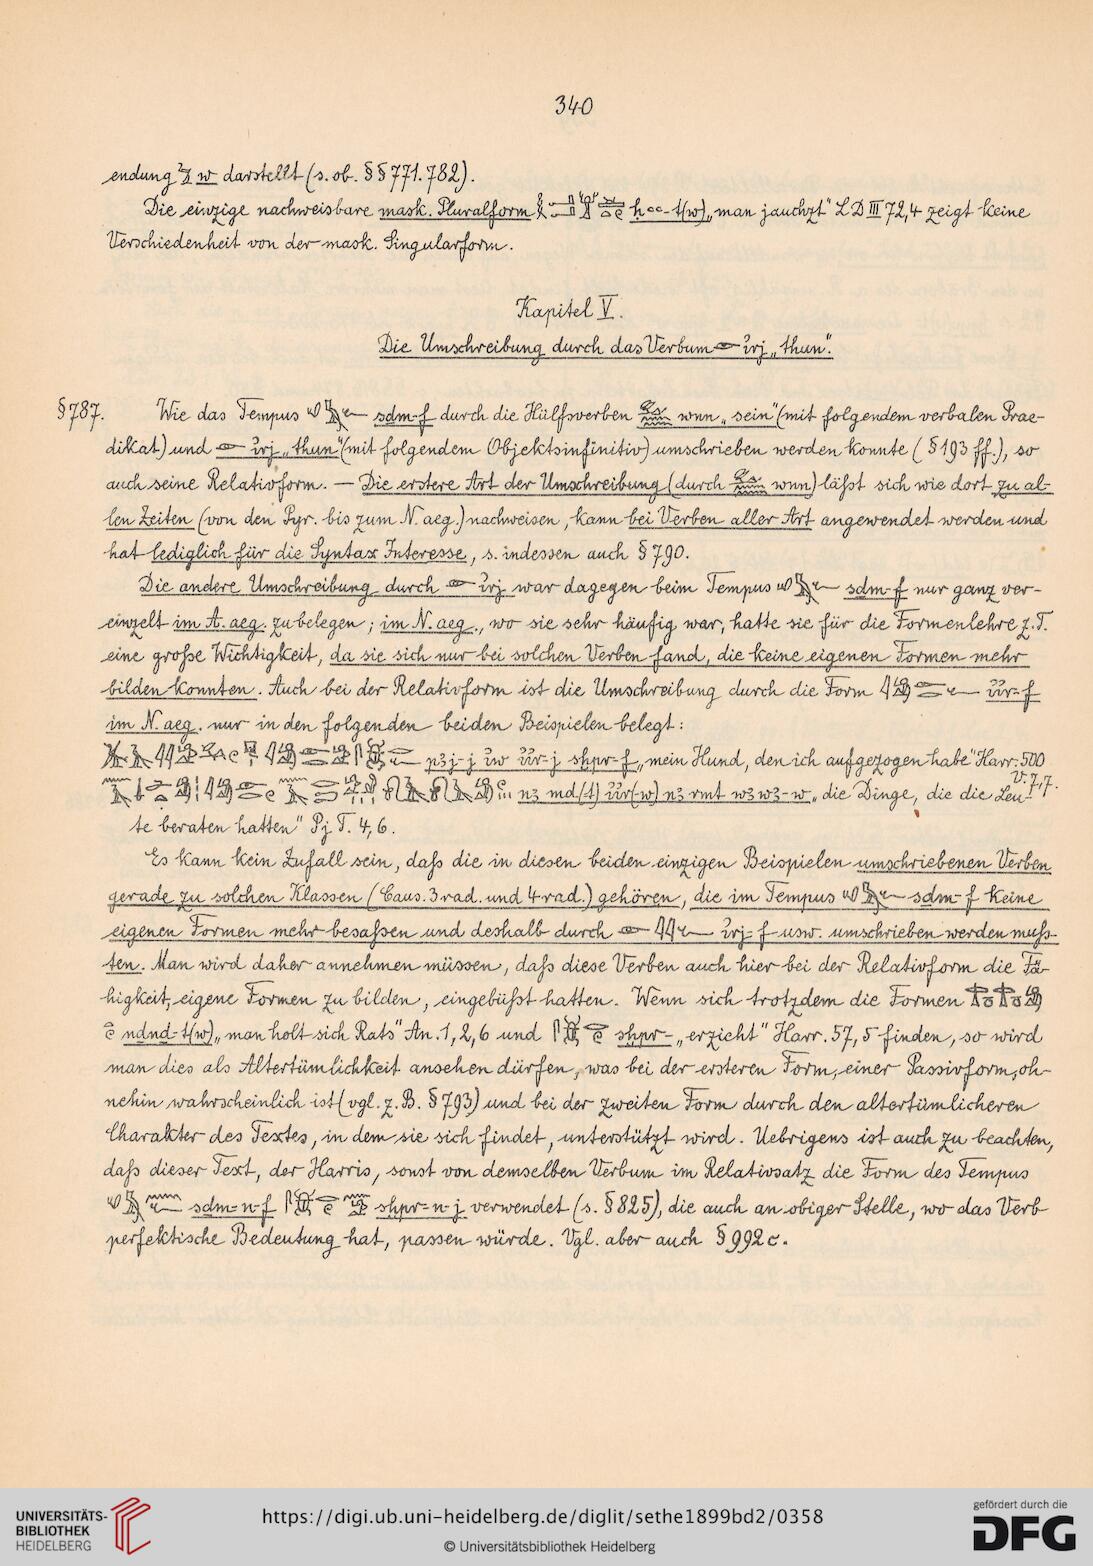 340
endung w darstellt (s. ob. §§ 771. 782).
Die einzige nachweisbare mask. Pluralform t(w) „man jauchzt“ LD III 72,4 zeigt keine
Verschiedenheit von der mask. Singularform.
Kapitel V.
Die Umschreibung durch das Verbum 𓁹 ı͗rj „thun“.
§ 787. Wie das Tempus sdm-f durch die Hülfsverben wnn „sein“ (mit folgendem verbalen Prae-
dikat) und 𓁹 ı͗rj „thun“ (mit folgendem Objektsinfinitiv) umschrieben werden konnte (§ 193 ff.), so
auch seine Relativform. — Die erstere Art der Umschreibung (durch wnn) läßt sich wie dort zu al-
len Zeiten (von den Pyr. bis zum N. aeg.) nachweisen, kann bei Verben aller Art angewendet werden und
hat lediglich für die Syntax Interesse, s. indessen auch § 790.
Die andere Umschreibung durch 𓁹 ı͗rj war dagegen beim Tempus sdm-f nur ganz ver-
einzelt im A. aeg. zu belegen; im N. aeg., wo sie sehr häufig war, hatte sie für die Formenlehre z. T.
eine große Wichtigkeit, da sie sich nur bei solchen Verben fand, die keine eigenen Formen mehr
bilden konnten. Auch bei der Relativform ist die Umschreibung durch die Form ı͗ı͗r-f
im N. aeg. nur in den folgenden beiden Beispielen belegt:
pꜣj-j ı͗w ı͗ı͗r-j sḫpr-f „mein Hund, den ich aufgezogen habe“ Harr. 500
V. 7,7.
nꜣ md(t) ı͗ı͗r(w) nꜣ rmt wꜣwꜣ-w „die Dinge, die die Leu-
te beraten hatten“ Pj T. 4, 6.
Es kann kein Zufall sein, daß die in diesen beiden einzigen Beispielen umschriebenen Verben
gerade zu solchen Klassen (Caus. 3rad. und 4rad.) gehören, die im Tempus sdm-f keine
eigenen Formen mehr besaßen und deshalb durch ı͗rj-f usw. umschrieben werden muß-
ten. Man wird daher annehmen müssen, daß diese Verben auch hier bei der Relativform die Fä-
higkeit, eigene Formen zu bilden, eingebüßt hatten. Wenn sich trotzdem die Formen
ndnd-t(w) „man holt sich Rats“ An. 1, 2, 6 und sḫpr- „erzieht“ Harr. 57, 5 finden, so wird
man dies als Altertümlichkeit ansehen dürfen, was bei der ersteren Form, einer Passivform, oh-
nehin wahrscheinlich ist (vgl. z. B. § 793) und bei der zweiten Form durch den altertümlicheren
Charakter des Textes, in dem sie sich findet, unterstützt wird. Uebrigens ist auch zu beachten,
daß dieser Text, der Harris, sonst von demselben Verbum im Relativsatz die Form des Tempus
sdm-n-f sḫpr-n-j verwendet (s. § 825), die auch an obiger Stelle, wo das Verb
perfektische Bedeutung hat, passen würde. Vgl. aber auch § 992c.
UNIVERSITÄTS-
BIBLIOTHEK
HEIDELBERG
https://digi.ub.uni-heidelberg.de/diglit/sethe1899bd2/0358
© Universitätsbibliothek Heidelberg
gefördert durch die
DFG